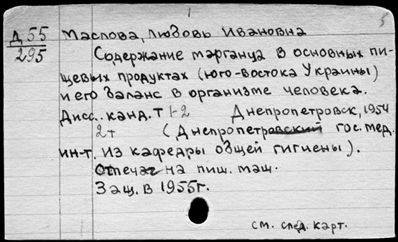 Д 55
295
Маслова, Любовь Ивановна
Содержание марганца в основных пи-
щевых продуктах (юго-востока Украины)
и его баланс в организме человека.
Дисс. канд. т 1-2 Днепропетровск, 1954
2т (Днепропетровский гос. мед.
ин-т. Из кафедры общей гигиены).
Отпечат на пиш. маш.
Защ. в 1955г.
см. след. карт.